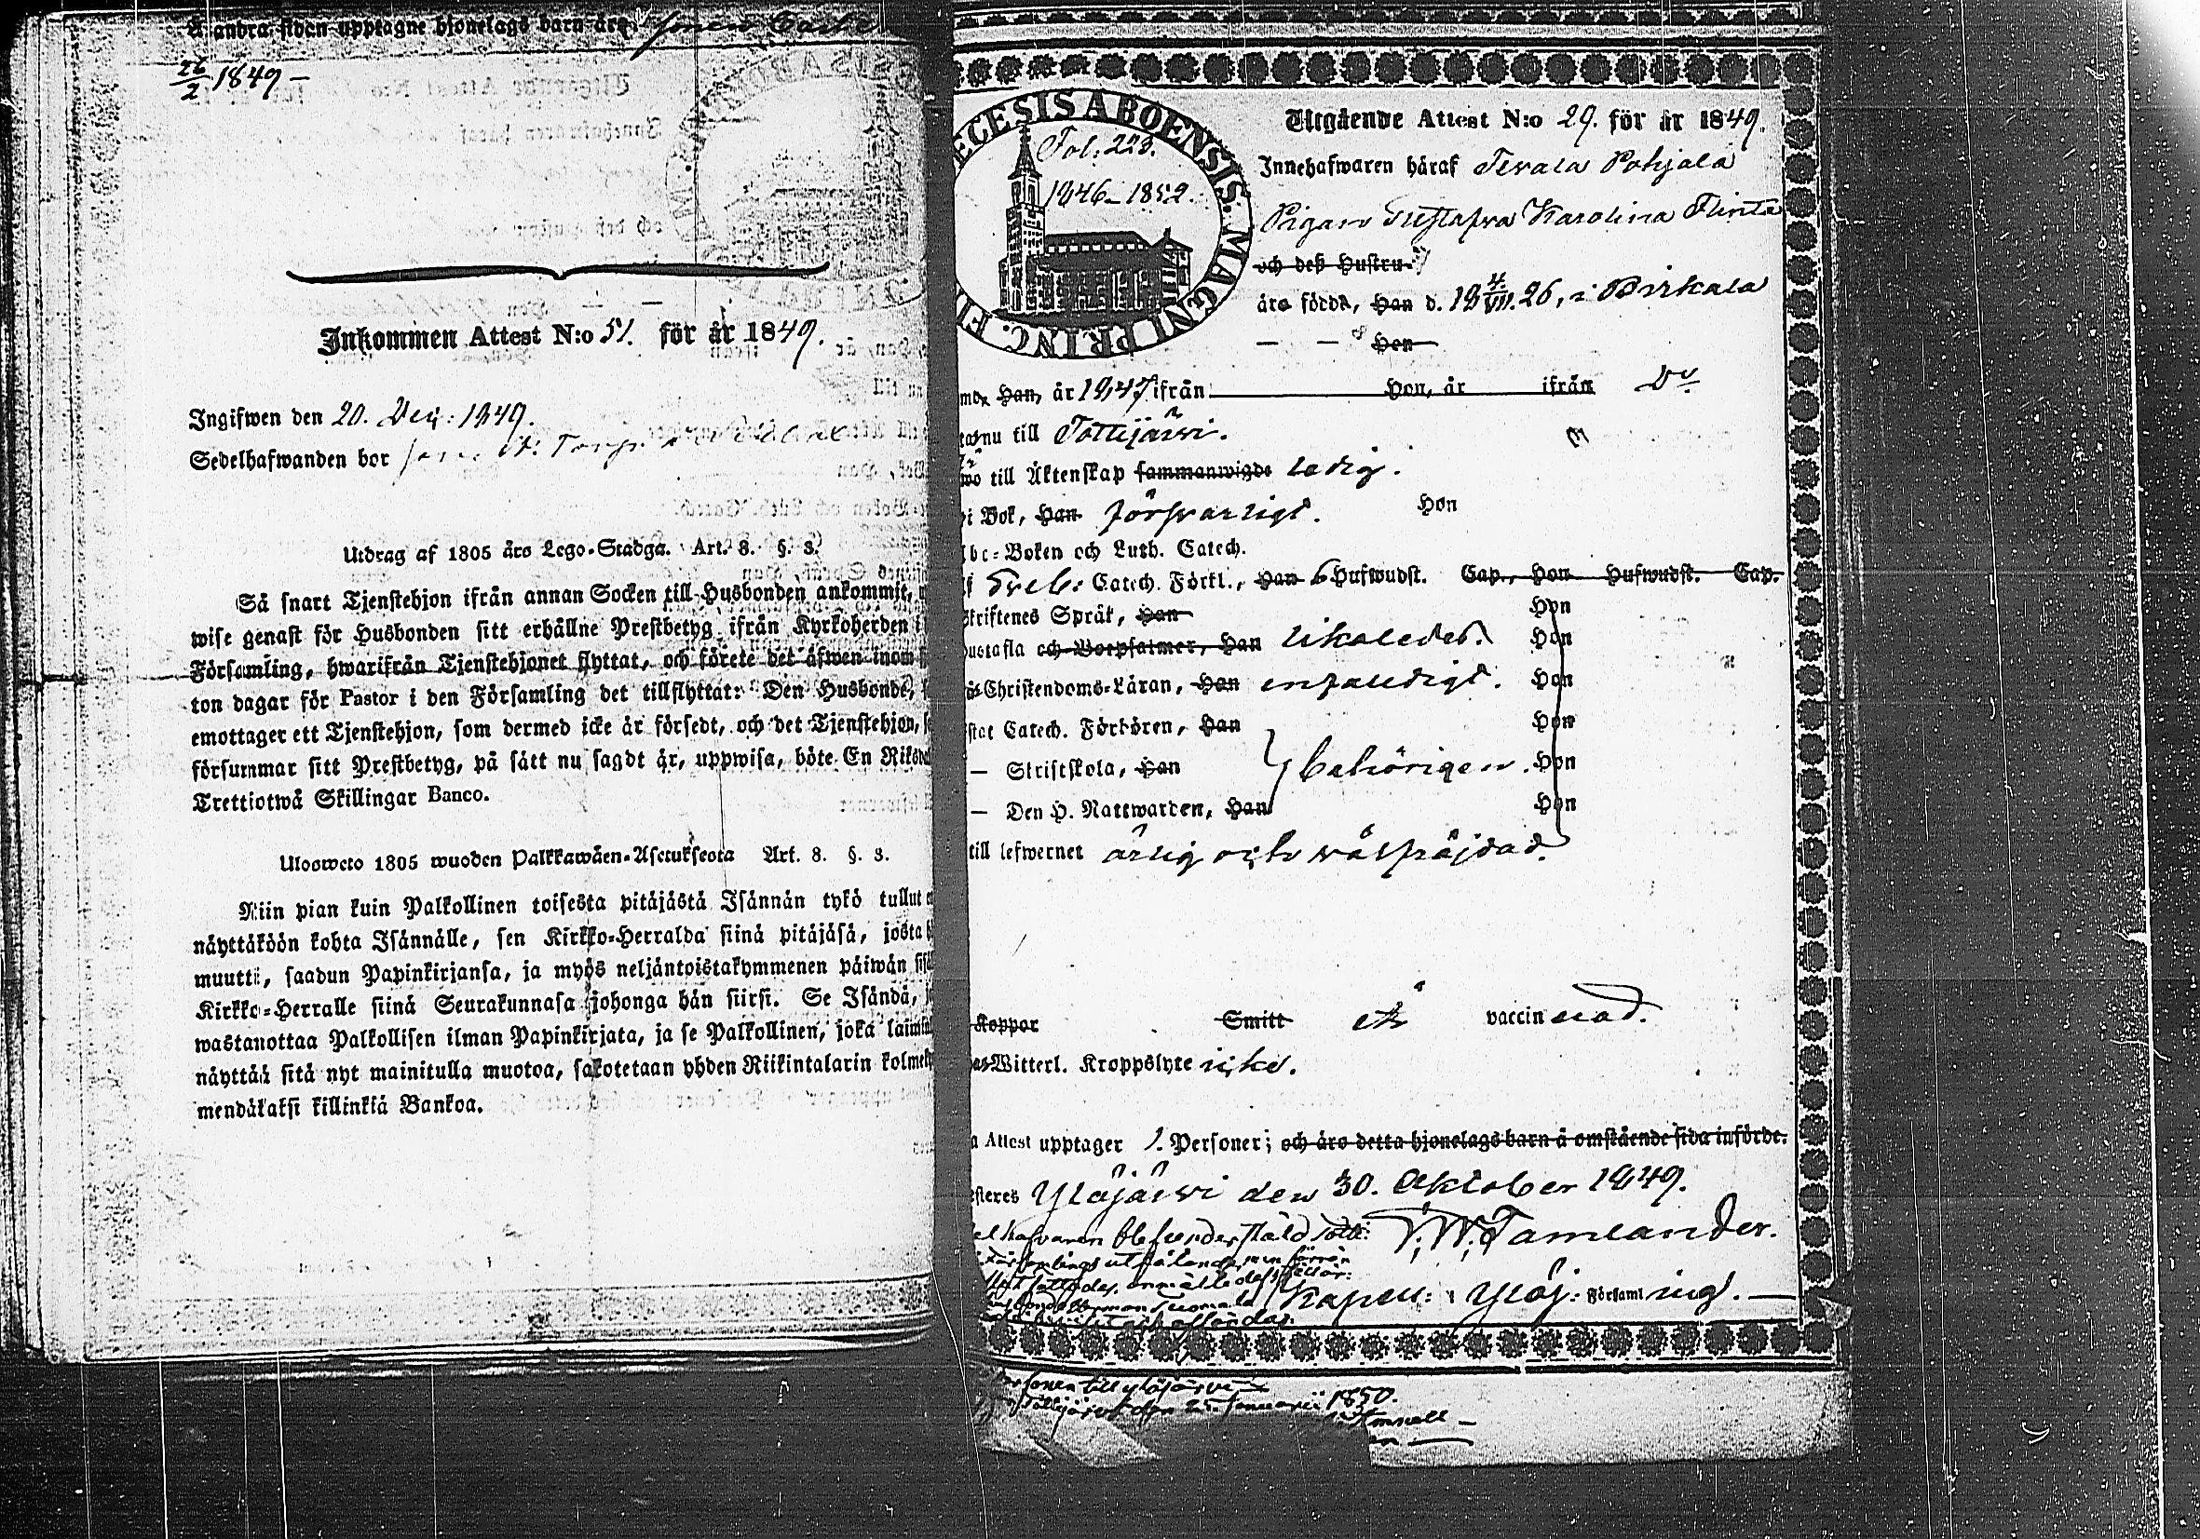 Å andra sidan upptagne hjonelags barn äro:
26/2 1849 –
Inkommen Attest N:o 51. för år 1849.
Ingifwen den 20. Dec: 1849.
Sedelhafwanden bor
Utdrag af 1805 års Lego-Stadga. Art. 8. §. 3.
Så snart Tjenstehjon ifrån annan Socken till Husbonden ankommit,
wise genast för Husbonden sitt erhållne Prestbetyg ifrån Kyrkoherden i
Församling, hwarifrån Tjenstehjonet flyttat, och förete det äfwen inom
ton dagar för Pastor i den Församling det tillflyttat: Den Husbonde,
emottager ett Tjenstehjon, som dermed icke är försedt, och det Tjenstehjon,
försummar sitt Prestbetyg, på sätt nu sagdt är, uppwisa, böte En
Trettiotwå Skillingar Banco.
Ulosweto 1805 wuoden Palkkawäen-Asetuksesta Art. 8. §. 3.
Niin pian kuin Palkollinen toisesta pitäjästä Isännän tykö tullut
näyttäköön kohta Isännälle, sen Kirkko-Herralda siinä pitäjäsä, josta
muutti, saadun Papinkirjansa, ja myös neljäntoistakymmenen päiwän
Kirkko-Herralle siinä Seurakunnasa johonga hän siirsi. Se Isändä,
wastanottaa Palkollisen ilman Papinkirjata, ja se Palkollinen, joka
näyttää sitä nyt mainitulla muotoa, sakotetaan yhden Riikintalarin
mendäkaksi killinkiä Bankoa.
ECESIS ABOENSIS. MAGNI PRINC. FI
Fol: 223.
1846–1852.
Utgående Attest N:o 29. för år 1849.
Innehafwaren häraf Terala Pohjala
Pigan Gustafwa Karolina Flinta
och deß Hustru
äro födda, Han d. 18 4/VII. 26, i Birkala
– – Hon
Han, år 1847 ifrån Hon, år ifrån
nu till Tottijärwi.
till Äktenskap sammanwigde ledig.
i Bok, Han försvarligt. Hon
Boken och Luth. Catech.
Catech. Förkl., Han 6 Hufwudst. Cap., Hon Hufwudst. Cap.
Skriftenes Språk, Han Hon
Hustafla och Botpsalmer, Han likaledes. Hon
Christendoms-Läran, Han enfaldigt. Hon
Catech. Förhören, Han Hon
– Skriftskola, Han behörigen. Hon
– Den H. Nattwarden, Han Hon
till lefwernet ärlig och wälfräjdad.
Koppor Smitt är vaccinerad.
Witterl. Kroppslyte icke.
Attest upptager 1. Personer; och äro detta hjonelags barn å omstående sida införde.
Ylöjärwi den 30. Oktober 1849.
Tamlander.
Kapell: i Ylöj: Församling. –
Personen till ylöjärvi
Tottijärvi den Januarii 1850.